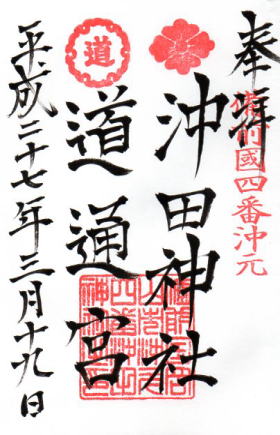 奉拝
備前國四番沖元
沖田神社
道通宮
道
平成二十七年三月十九日